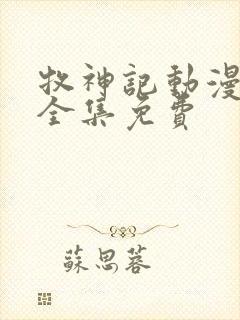 牧神記動漫
全集免費
蘇思蓉